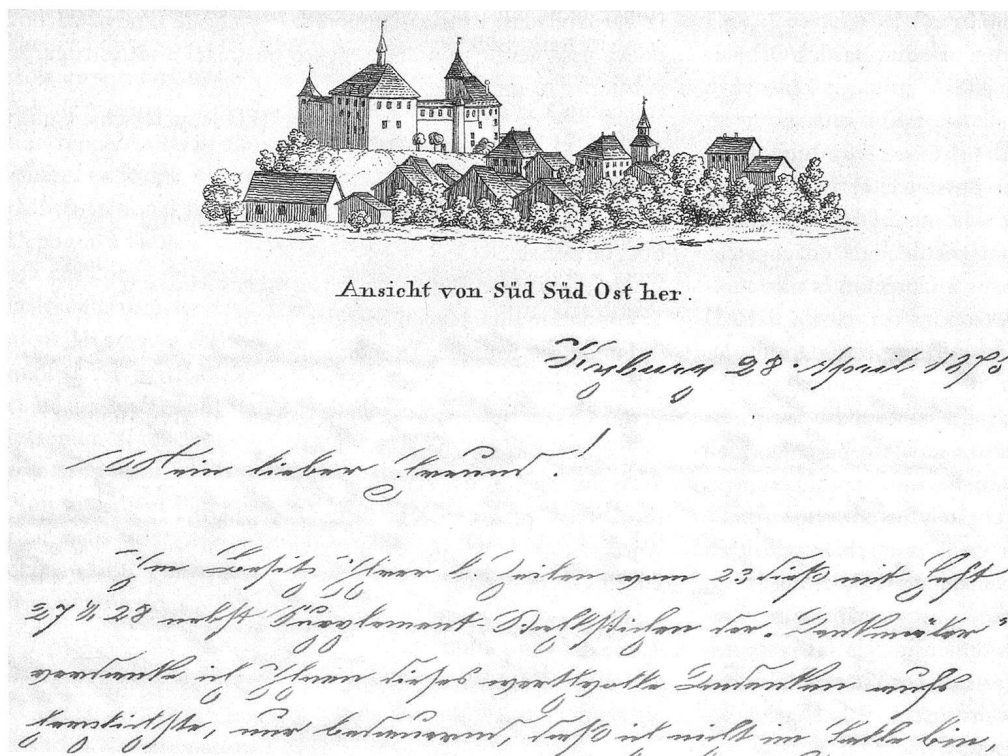 Ansicht von Süd Süd Ost her.
Kyburg 28. April 187
Mein lieber Freund!
Im Besitz Ihrer Zeilen vom 23 dieß mit Heft
27 & 28 nebst Supplement- der "Denkmäler"
verdanke ich Ihnen dieses werthvolle Andenken aufs
herzlichste, nur bedauernd, daß ich nicht im Falle bin,